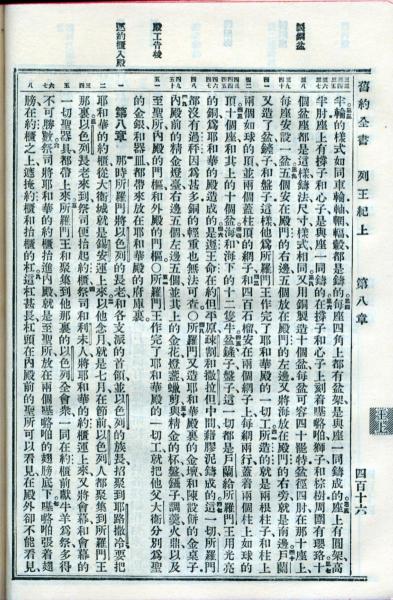 製銅盆
殿工告竣
運約櫃入殿
舊約全書 列王紀上 第八章 四百十六
王上
輪的樣式如同車輪軸輞輻轂都是鑄的每座四角上都有盆架是與座一同鑄成的座上有圓架高
半肘座上有撐子和心子是與座一同鑄的在撐子和心子上刻着𠼻𡀔啪獅子和棕樹周圍有瓔珞十
個盆座都是這樣鑄法尺寸樣式相同又用銅製造十個盆每盆可容四十罷特盆徑四肘在那十座上
每座安設一盆五個安在殿門的右邊五個放在殿門的左邊又將海放在殿門的右旁就是南邊戶蘭
又造了盆鏟子和盤子這樣他爲所羅門王作完了耶和華殿的一切工所造的就是兩根柱子和柱上
兩個如球的頂並兩個蓋柱頂的網子和四百石榴安在兩個網子上每網兩行蓋着兩個柱上如球的
頂十個座和其上的十個盆海和海下的十二隻牛盆鏟子盤子這一切都是戶蘭給所羅門王用光亮
的銅爲耶和華的殿造成的是遵王命在約但平原疎割和撒拉但中間藉膠泥鑄成的這一切所羅門
都沒有過秤因爲甚多銅的輕重也無法可查〇所羅門又造耶和華殿裏的金壇和陳設餅的金桌子
內殿前的精金燈臺右邊五個左邊五個並其上的金花燈盞蠟剪與精金的杯盤鑷子調羹火鼎以及
至聖所內殿的門樞和外殿的門樞〇所羅門王作完了耶和華殿的一切工就把他父大衞分別爲聖
的金銀和器皿都帶來放在耶和華殿的府庫裏
第八章 那時所羅門將以色列的長老和各支派的首領並以色列的族長招聚到耶路撒冷要把
耶和華的約櫃從大衞城就是錫安運上來以他念月就是七月在節前以色列人都聚集到所羅門王
那裏以色列長老來到祭司便抬起約櫃祭司和利未人將耶和華的約櫃運上來又將會幕和會幕的
一切聖器具都帶上來所羅門王和聚集到他那裏的以色列全會衆一同在約櫃前獻牛羊爲祭多得
不可勝數祭司將耶和華的約櫃抬進內殿就是至聖所放在兩個𠼻𡀔啪的翅膀底下𠼻𡀔啪張着翅
膀在約櫃之上遮掩約櫃和抬櫃的杠這杠甚長杠頭在內殿前的聖所可以看見在殿外卻不能看見